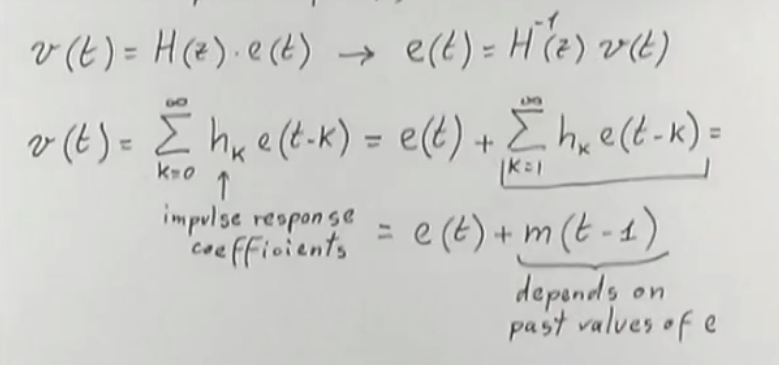 v(t) = H(z) · e(t) → e(t) = H⁻¹(z) v(t)
v(t) = ∑_{k=0}^{∞} h_k e(t-k) = e(t) + ∑_{k=1}^{∞} h_k e(t-k) =
↑
impulse response
coefficients
= e(t) + m(t-1)
depends on
past values of e